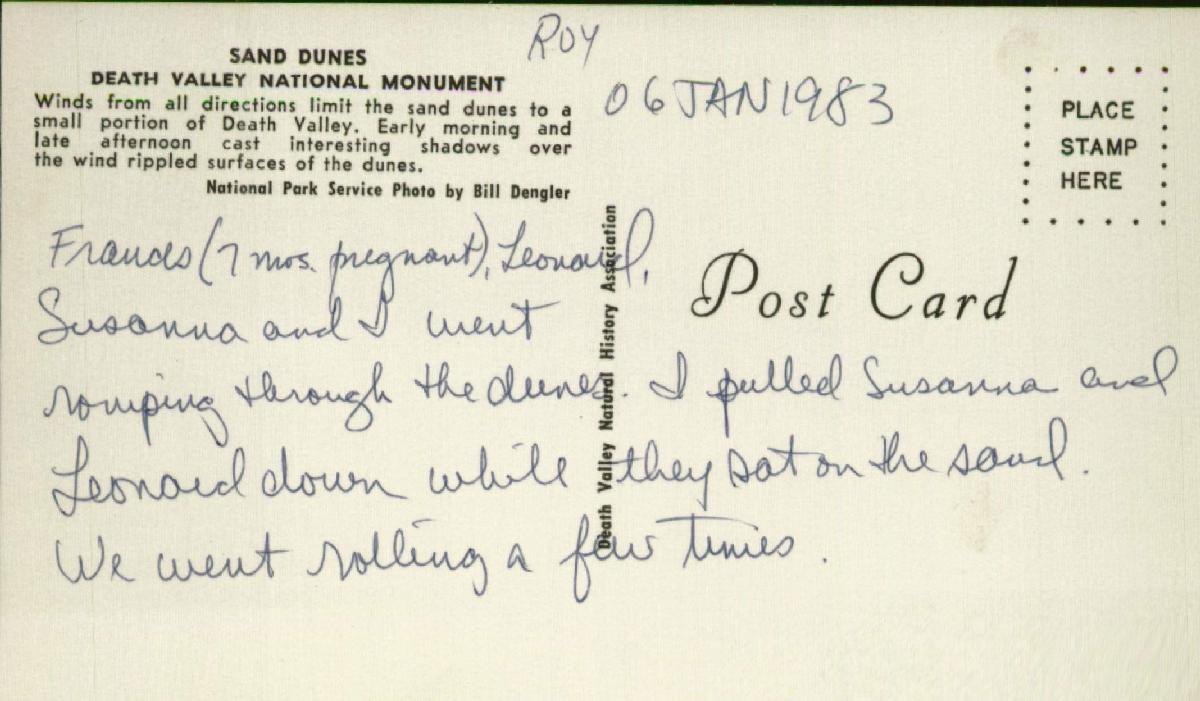 ROY
06 JAN 1983
SAND DUNES
DEATH VALLEY NATIONAL MONUMENT
Winds from all directions limit the sand dunes to a
small portion of Death Valley. Early morning and
late afternoon cast interesting shadows over
the wind rippled surfaces of the dunes.
National Park Service Photo by Bill Dengler
PLACE
STAMP
HERE
Death Valley Natural History Association
Post Card
Frances (7 mos. pregnant), Leonard,
Susanna and I went
romping through the dunes. I pulled Susanna and
Leonard down while they sat on the sand.
We went rolling a few times.